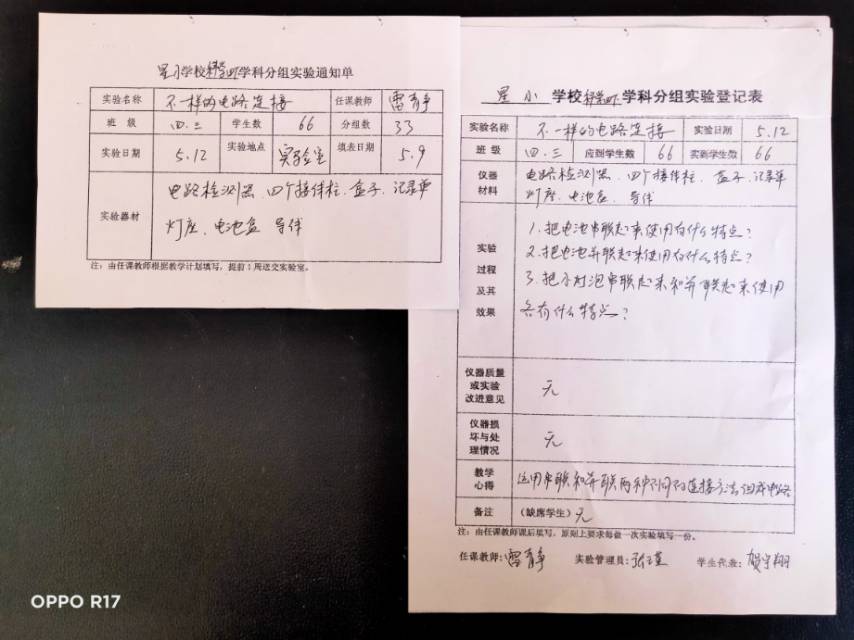 星小学校科学学科分组实验通知单
实验名称 不一样的电路连接 任课教师 雷静
班 级 四.三 学生数 66 分组数 33
实验日期 5.12 实验地点 实验室 填表日期 5.9
实验器材 电路检测器、四个接线柱、盒子、记录单
灯座、电池盒 导线
注：由任课教师根据教学计划填写，提前1周送交实验室。
星小 学校 学科分组实验登记表
实验名称 不一样的电路连接 实验日期 5.12
班 级 四.三 应到学生数 66 实到学生数 66
仪器材料 电路检测器、四个接线柱、盒子、记录单
灯座、电池盒、导线
实验过程及其效果
1.把电池串联起来使用有什么特点？
2.把电池并联起来使用有什么特点？
3.把小灯泡串联起来和并联起来使用
各有什么特点？
仪器质量或实验改进意见 无
仪器损坏与处理情况 无
教学心得 运用串联和并联两种不同的连接方法组成电路
备注 (缺席学生) 无
注：由任课教师课后填写，原则上要求每做一次实验填写一份。
任课教师: 雷静 实验管理员: 张瑾 学生代表: 贺宇翔
OPPO R17